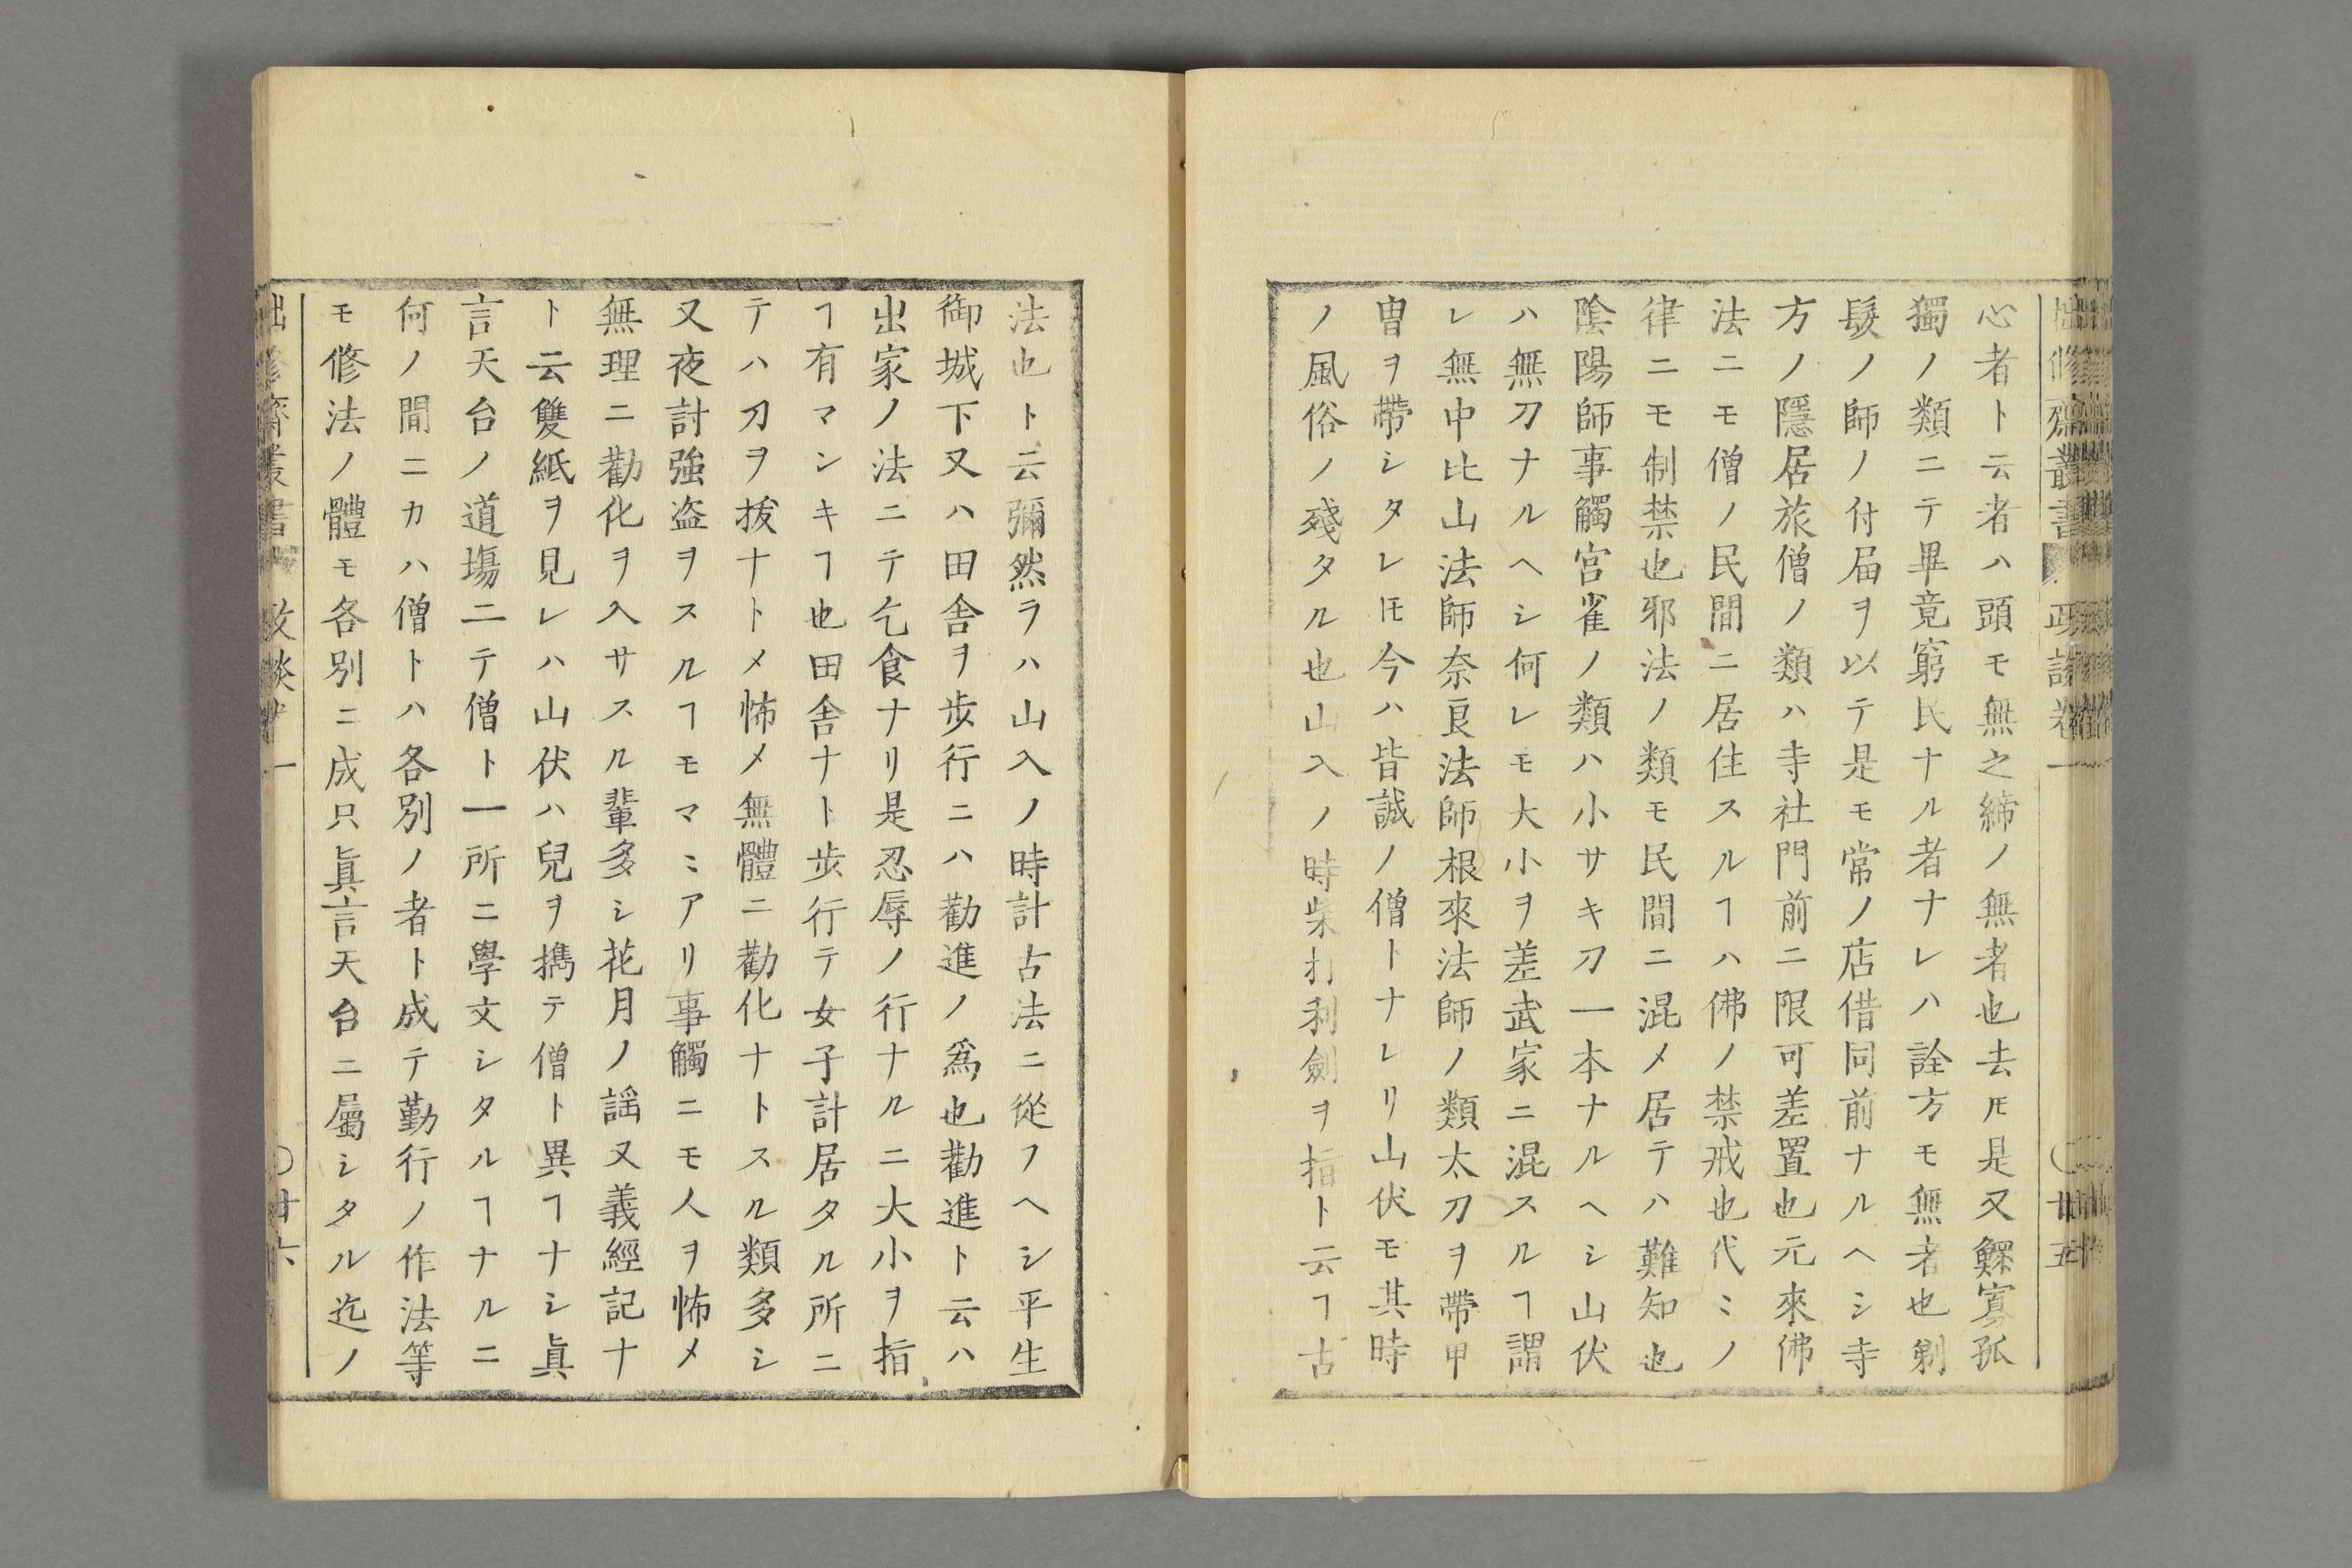 心者ト云者ハ頭モ無之締ノ無者也去𪜈是又鰥寡孤
獨ノ類ニテ畢竟窮民ナル者ナレハ詮方モ無者也剃
髮ノ師ノ付届ヲ以テ是モ常ノ店借同前ナルヘシ寺
方ノ隱居旅僧ノ類ハ寺社門前ニ限可差置也元來佛
法ニモ僧ノ民間ニ居住スルヿハ佛ノ禁戒也代ミノ
律ニモ制禁也邪法ノ類モ民間ニ混メ居テハ難知也
陰陽師事觸宮雀ノ類ハ小サキ刀一本ナルヘシ山伏
ハ無刀ナルヘシ何レモ大小ヲ差武家ニ混スルヿ謂
レ無中比山法師奈良法師根來法師ノ類太刀ヲ帶甲
冑ヲ帶シタレ𪜈今ハ皆誠ノ僧トナレリ山伏モ其時
ノ風俗ノ殘タル也山入ノ時柴打利劍ヲ指ト云ヿ古
法也ト云彌然ラハ山入ノ時計古法ニ從フヘシ平生
御城下又ハ田舍ヲ步行ニハ勸進ノ爲也勸進ト云ハ
出家ノ法ニテ乞食ナリ是忍辱ノ行ナルニ大小ヲ指
ヿ有マシキヿ也田舍ナト步行テ女子計居タル所ニ
テハ刀ヲ拔ナトメ怖メ無體ニ勸化ナトスル類多シ
又夜討強盗ヲスルヿモマミアリ事觸ニモ人ヲ怖メ
無理ニ勸化ヲ入サスル輩多シ花月ノ謡又義經記ナ
ト云雙紙ヲ見レハ山伏ハ兒ヲ携テ僧ト異ヿナシ眞
言天台ノ道塲ニテ僧ト一所ニ學文シタルヿナルニ
何ノ間ニカハ僧トハ各別ノ者ト成テ勤行ノ作法等
モ修法ノ體モ各別ニ成只眞言天台ニ屬シタル迄ノ
修齋叢書 政談卷一 〇廿六